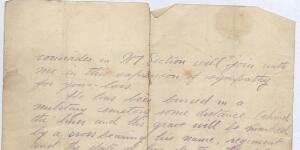 comrades in No 7 Section will join with
me in this expression of sympathy
for your loss.
He has been buried in a
military cemetery some distance behind
the lines and his grave will be marked
by a cross bearing his name, regiment
and the date